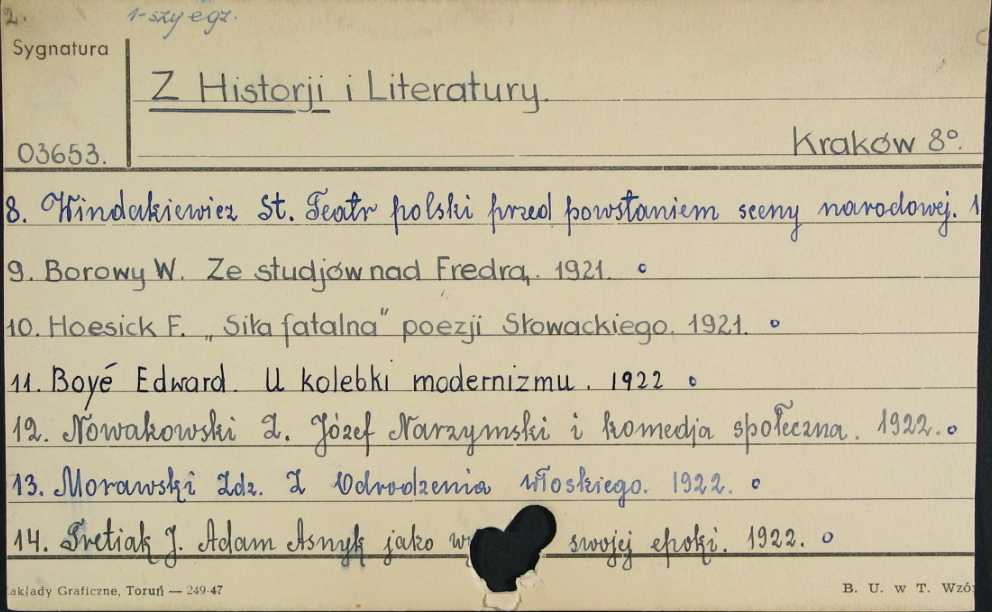 2.
1-szy egz.
Sygnatura
Z Historji i Literatury.
03653.
Kraków 8°.
8. Windakiewicz St. Teatr polski przed powstaniem sceny narodowej. 1
9. Borowy W. Ze studjów nad Fredrą. 1921.
10. Hoesick F. „Siła fatalna" poezji Słowackiego. 1921.
11. Boyé Edward. U kolebki modernizmu. 1922
12. Nowakowski Z. Józef Narzymski i komedja społeczna. 1922.
13. Morawski Zdz. Z Odrodzenia włoskiego. 1922.
14. Tretiak J. Adam Asnyk jako wy swojej epoki. 1922.
akłady Graficzne, Toruń — 249-47
B. U. w T. Wzó